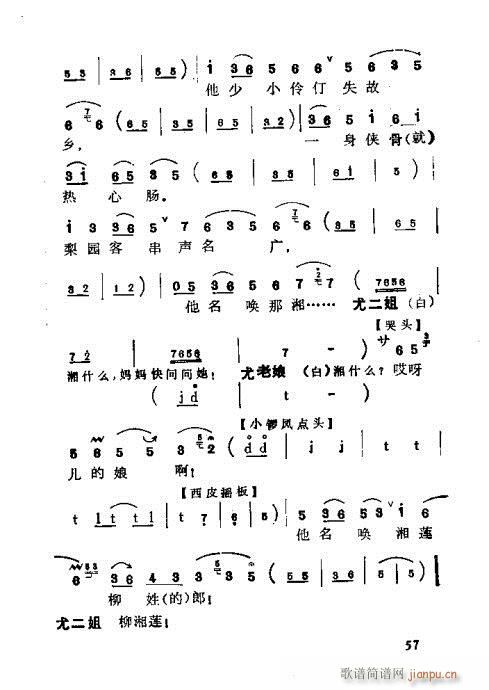 5 3 | 3 6 | 5 5 ) | i 3 6 5 6 6 ˅ 6 6 3 5
他 少 小 伶 仃 失 故
6 6 ( 3 5 | 6 5 | 3 5 | 5 ) | 3 6 i 6 i
乡， 一 身 侠 骨 (就)
3 i 6 5 3 5 ( 6 5 | 3 6 | i i | 5 )
热 心 肠。
i 3 3 5 ˅ 7 6 3 5 6 6 ( 3 5 | 6 5 |
梨 园 客 串 声 名 广，
3 2 | 1 2 | ) 0 5 3 5 6 6 7 7 ( 7 6 5 6
他 名 唤 那 湘 …… 尤二姐 (白)
【哭头】
7 2 7 6 5 6 | 7 - ) サ 6 5 3
湘什么，妈妈快问问她！ 尤老娘 (白)湘什么？ 哎呀
( j d | t - )
【小锣凤点头】
5 6 5 5 3 2 ( d d | j j t t
儿 的 娘 啊！
【西皮摇板】
t | t t | t 7 . | 5 - ) 3 5 3 6 5 3 ˅ i 6
他 名 唤 湘 莲
6 5 3 3 6 4 3 3 5 3 3 5 ( 5 5 | 3 6 | 5 5 | 5 )
柳 姓 (的) 郎！
尤二姐 柳湘莲！
57
歌谱简谱网 jianpu.cn